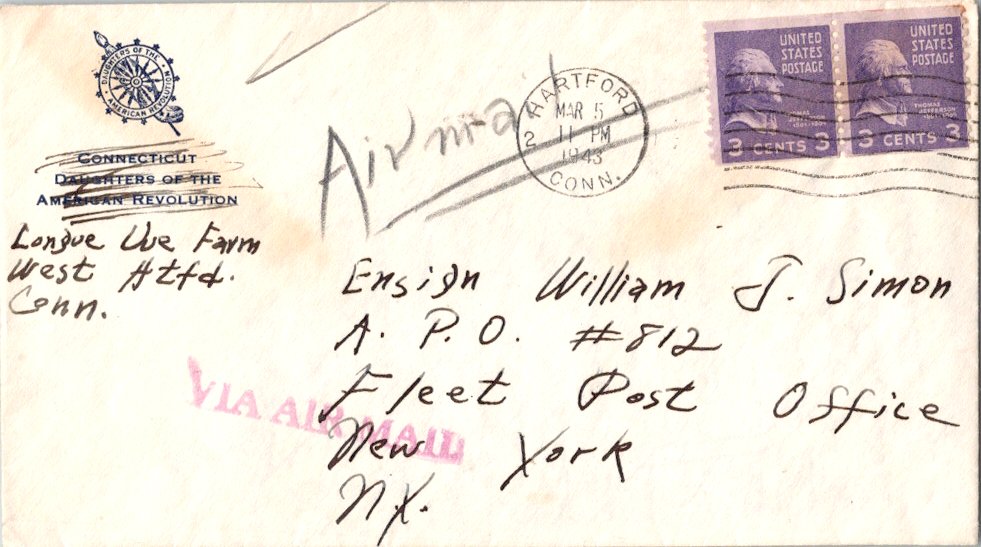 DAUGHTERS OF THE
AMERICAN REVOLUTION
CONNECTICUT
DAUGHTERS OF THE
AMERICAN REVOLUTION
Longue Vue Farm
West Htfd.
Conn.
Airmail
HARTFORD
MAR 5
11 PM
1943
2
CONN.
UNITED
STATES
POSTAGE
THOMAS
JEFFERSON
3 CENTS 3
UNITED
STATES
POSTAGE
THOMAS
JEFFERSON
3 CENTS 3
Ensign William J. Simon
A. P. O. #812
Fleet Post Office
New York
N.Y.
VIA AIR MAIL